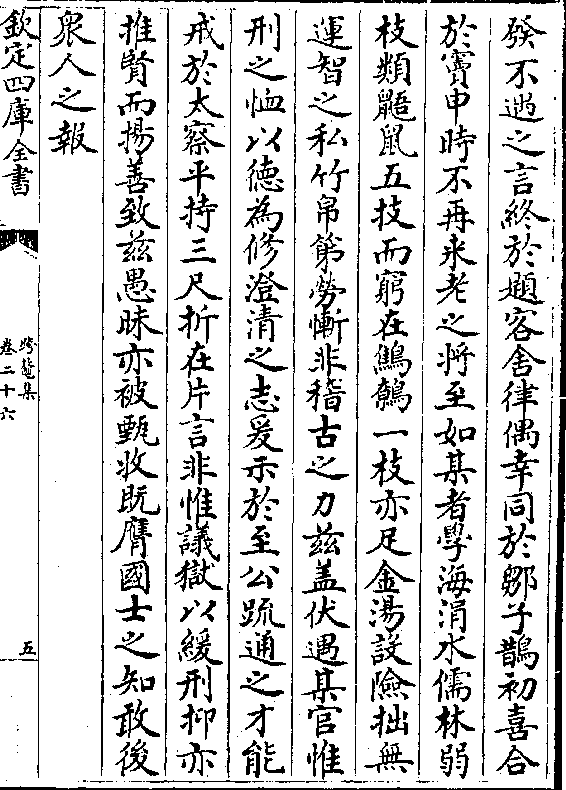 發不遇之言終於題客舍律偶幸同於鄒子鵲初喜合
於竇申時不再來老之將至如某者學海涓水儒林弱
枝類鼯鼠五技而窮在鷦鷯一枝亦足金湯設險拙無
運智之私竹帛第勞慚非稽古之力兹盖伏遇某官惟
刑之恤以德為修澄清之志爰示於至公疏通之才能
戒於太察平持三尺折在片言非惟議獄以緩刑抑亦
推賢而揚善致兹愚昧亦被甄收既膺國士之知敢後
衆人之報
欽定四庫全書
跨鼇集
卷二十六
五